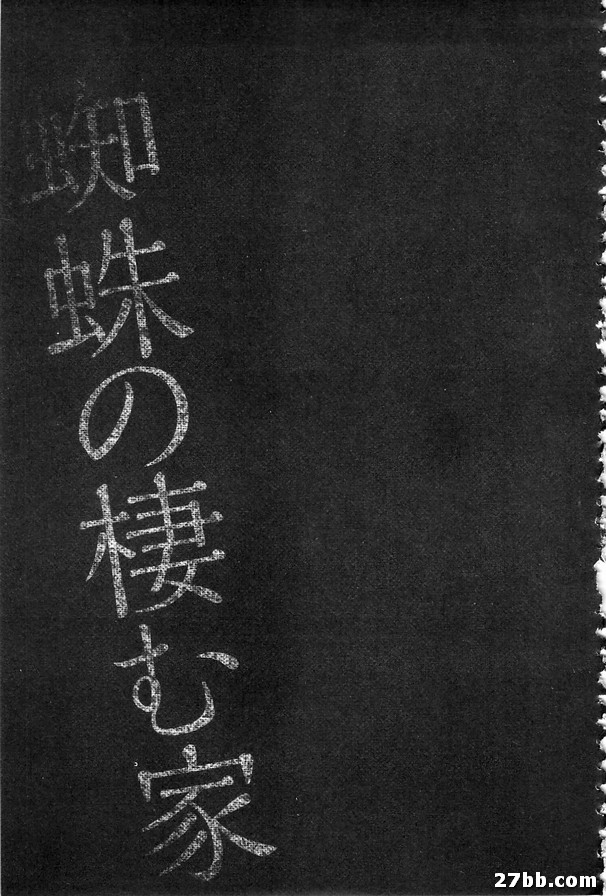 蜘蛛の棲む家
27bb.com